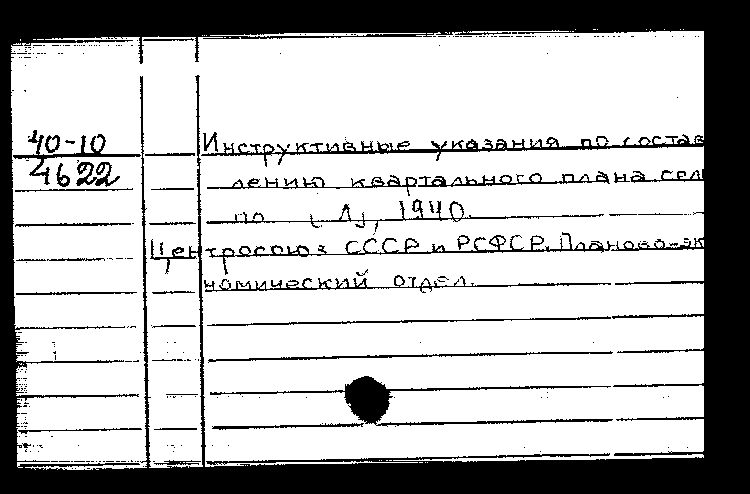 40-10
4622
Инструктивные указания по состав
лению квартального плана сель
по [Л], 1940.
Центросоюз СССР и РСФСР. Планово-эк
номический отдел.